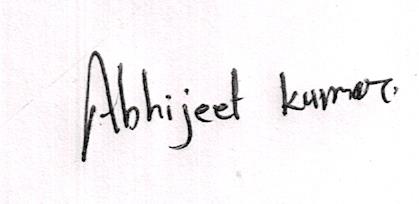 Abhijeet kumar.